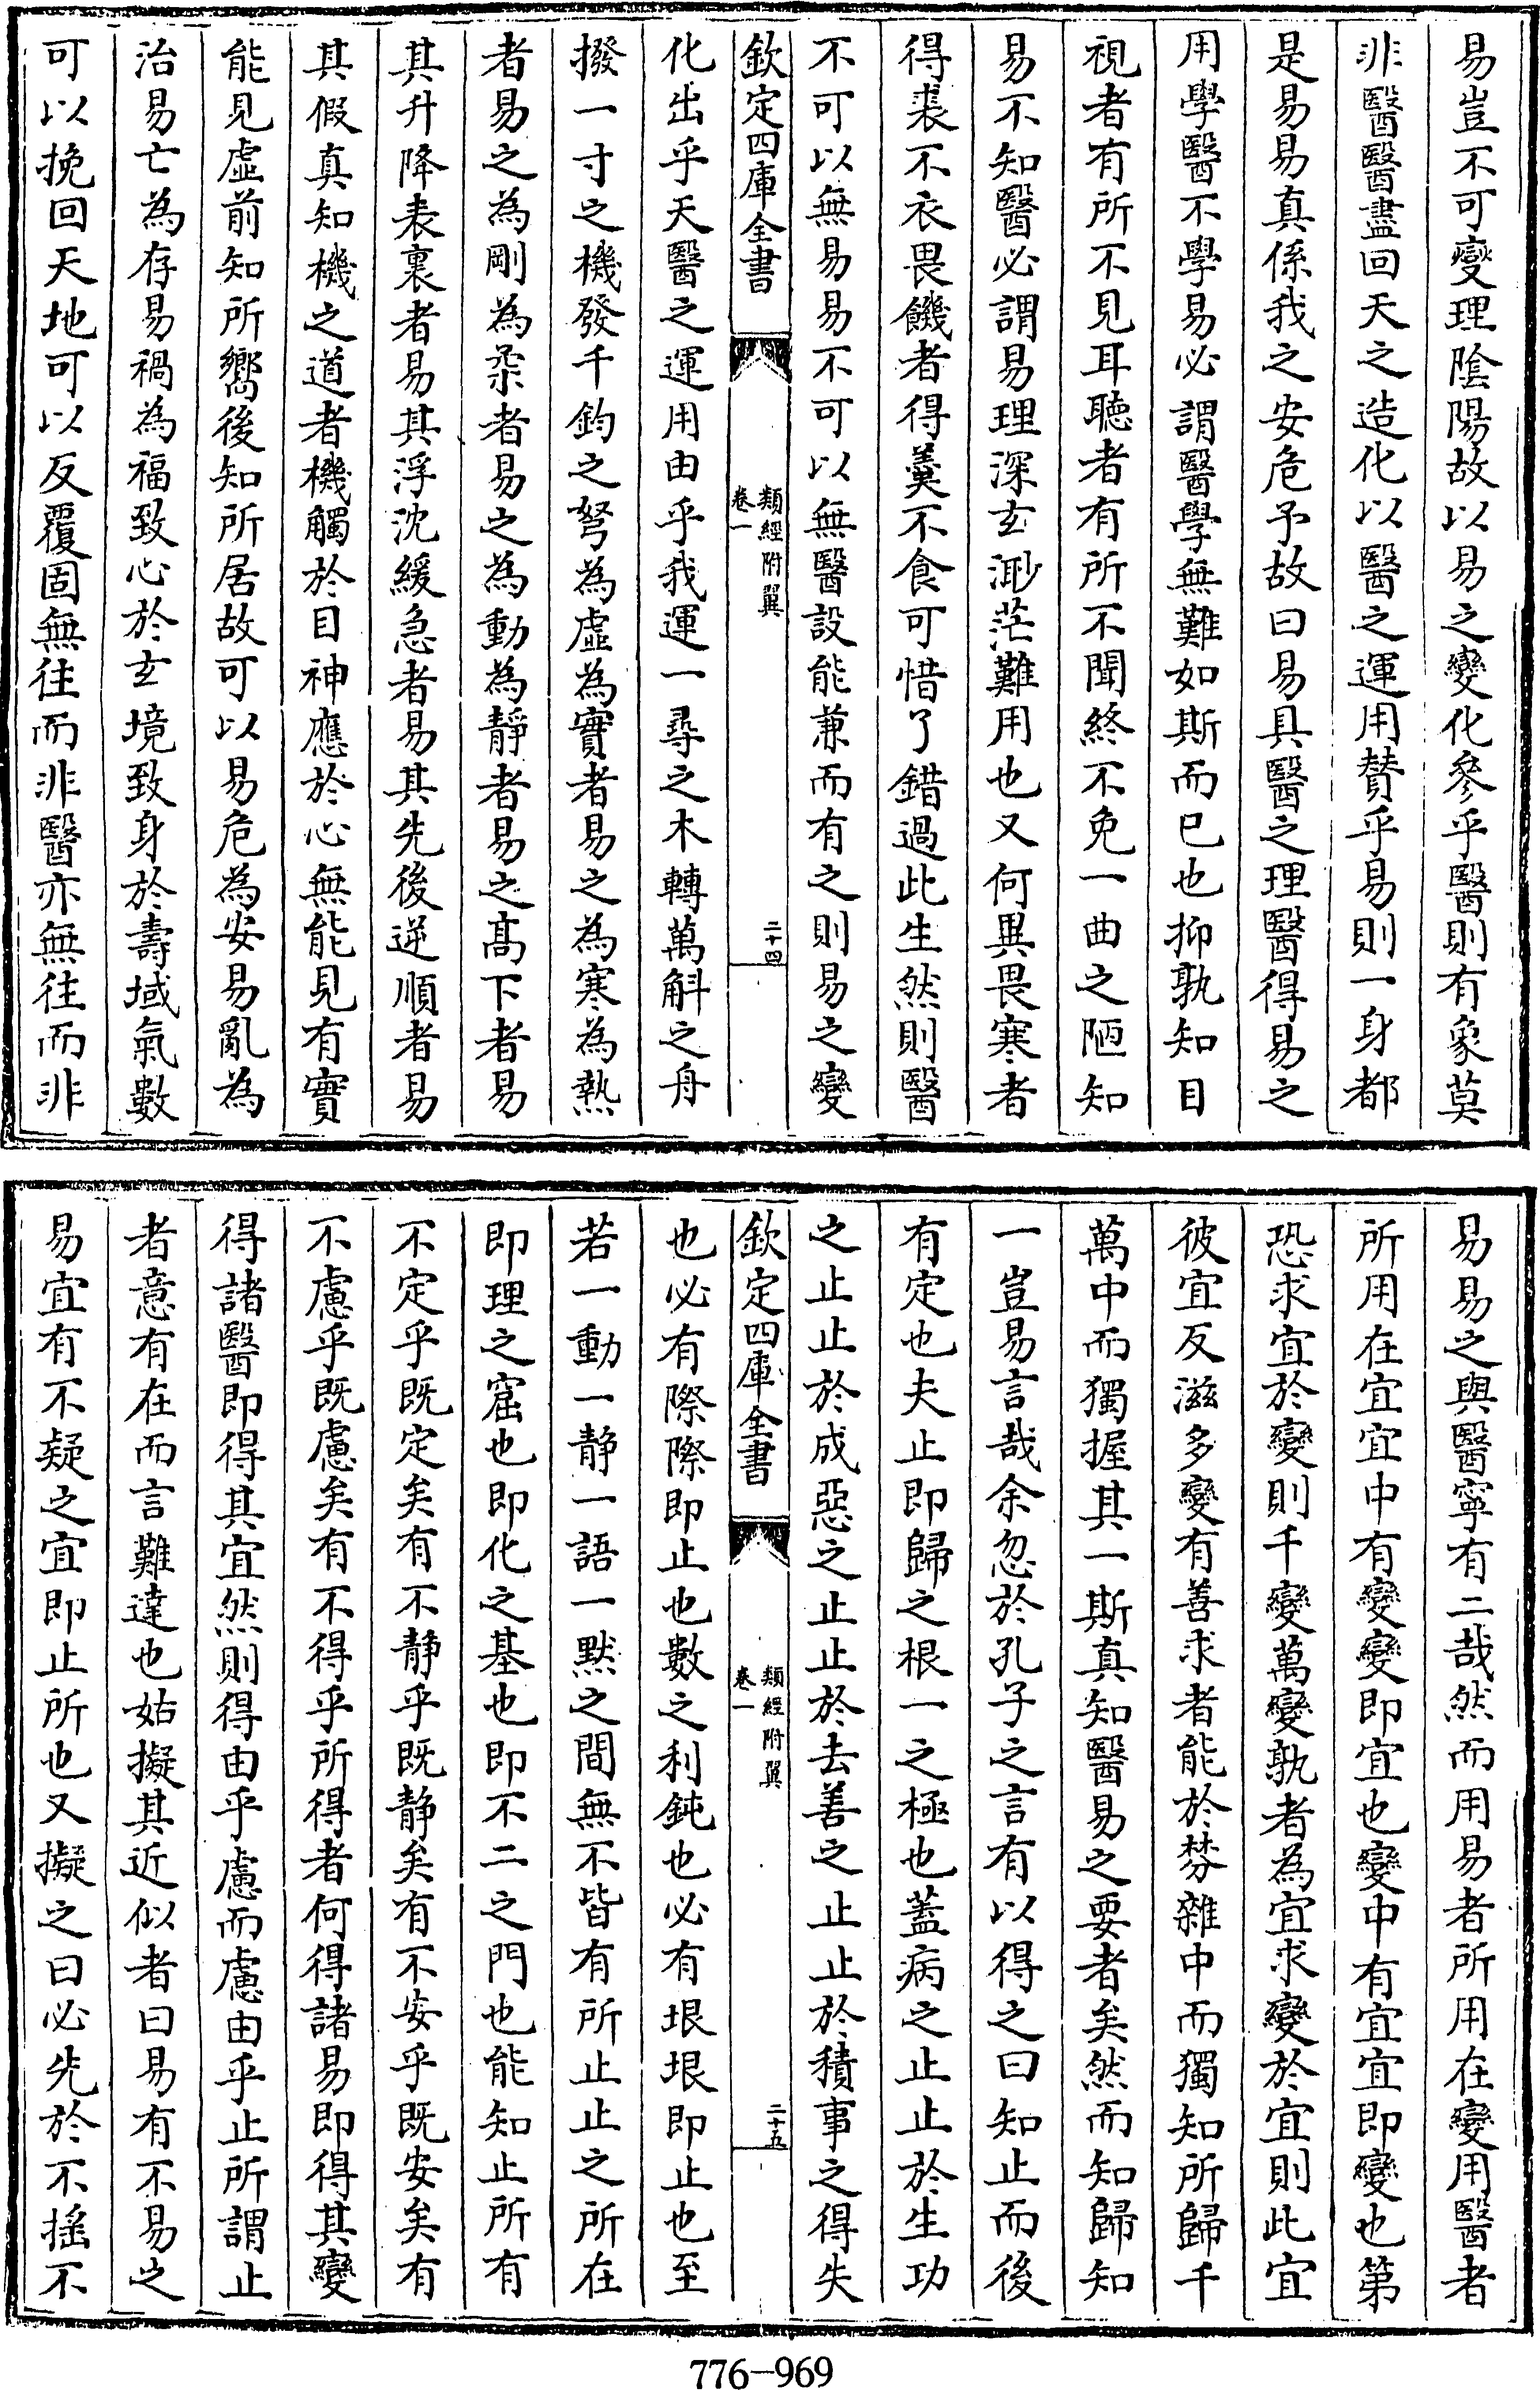 易豈不可變理陰陽故以易之變化參乎醫則有象莫
非醫醫盡回天之造化以醫之運用賛乎易則一身都
是易易真係我之安危予故曰易具醫之理醫得易之
用學醫不學易必謂醫學無難如斯而已也抑孰知目
視者有所不見耳聴者有所不聞終不免一曲之陋知
易不知醫必謂易理深玄渺茫難用也又何異畏寒者
得裘不衣畏饑者得羹不食可惜了錯過此生然則醫
不可以無易易不可以無醫設能兼而有之則易之變
欽定四庫全書
類經附翼
卷一
二十四
化出乎天醫之運用由乎我運一尋之木轉萬斛之舟
撥一寸之機發千鈞之弩為虛為實者易之為寒為熱
者易之為剛為柔者易之為動為靜者易之髙下者易
其升降表裏者易其浮沈緩急者易其先後逆順者易
其假真知機之道者機觸於目神應於心無能見有實
能見虛前知所嚮後知所居故可以易危為安易亂為
治易亡為存易禍為福致心於玄境致身於壽域氣數
可以挽回天地可以反覆固無往而非醫亦無往而非
易易之與醫寧有二哉然而用易者所用在變用醫者
所用在宜宜中有變變即宜也變中有宜宜即變也第
恐求宜於變則千變萬變孰者為宜求變於宜則此宜
彼宜反滋多變有善求者能於棼雜中而獨知所歸千
萬中而獨握其一斯真知醫易之要者矣然而知歸知
一豈易言哉余忽於孔子之言有以得之曰知止而後
有定也夫止即歸之根一之極也蓋病之止止於生功
之止止於成惡之止止於去善之止止於積事之得失
欽定四庫全書
類經附翼
卷一
二十五
也必有際際即止也數之利鈍也必有垠垠即止也至
若一動一静一語一黙之間無不皆有所止止之所在
即理之窟也即化之基也即不二之門也能知止所有
不定乎既定矣有不静乎既静矣有不安乎既安矣有
不慮乎既慮矣有不得乎所得者何得諸易即得其變
得諸醫即得其宜然則得由乎慮而慮由乎止所謂止
者意有在而言難達也姑擬其近似者曰易有不易之
易宜有不疑之宜即止所也又擬之曰必先於不揺不
776-969